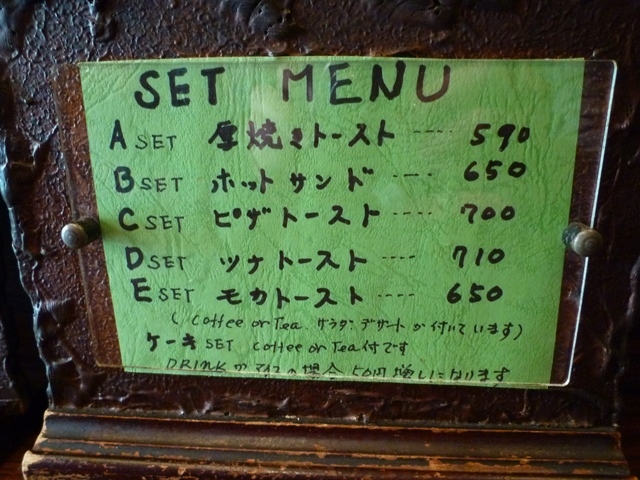 SET MENU
A SET 厚焼きトースト ---- 590
B SET ホットサンド ---- 650
C SET ピザトースト ---- 700
D SET ツナトースト ---- 710
E SET モカトースト ---- 650
(Coffee or Tea サラダ デザートが付いています)
ケーキ SET Coffee or Tea付です
DRINKがアイスの場合50円増しになります